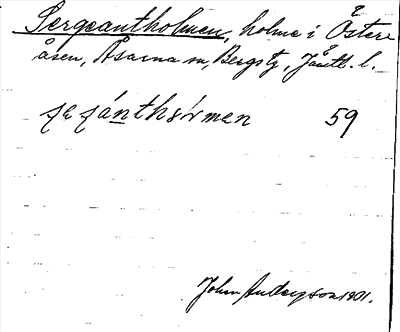 Sergeantholmen, holme i Östere
åsen, Åsarna sn, Bergs tg, Jämtl. l.
sɛrʃánthɔ̀rmen 59
Johan Anderson 1901.